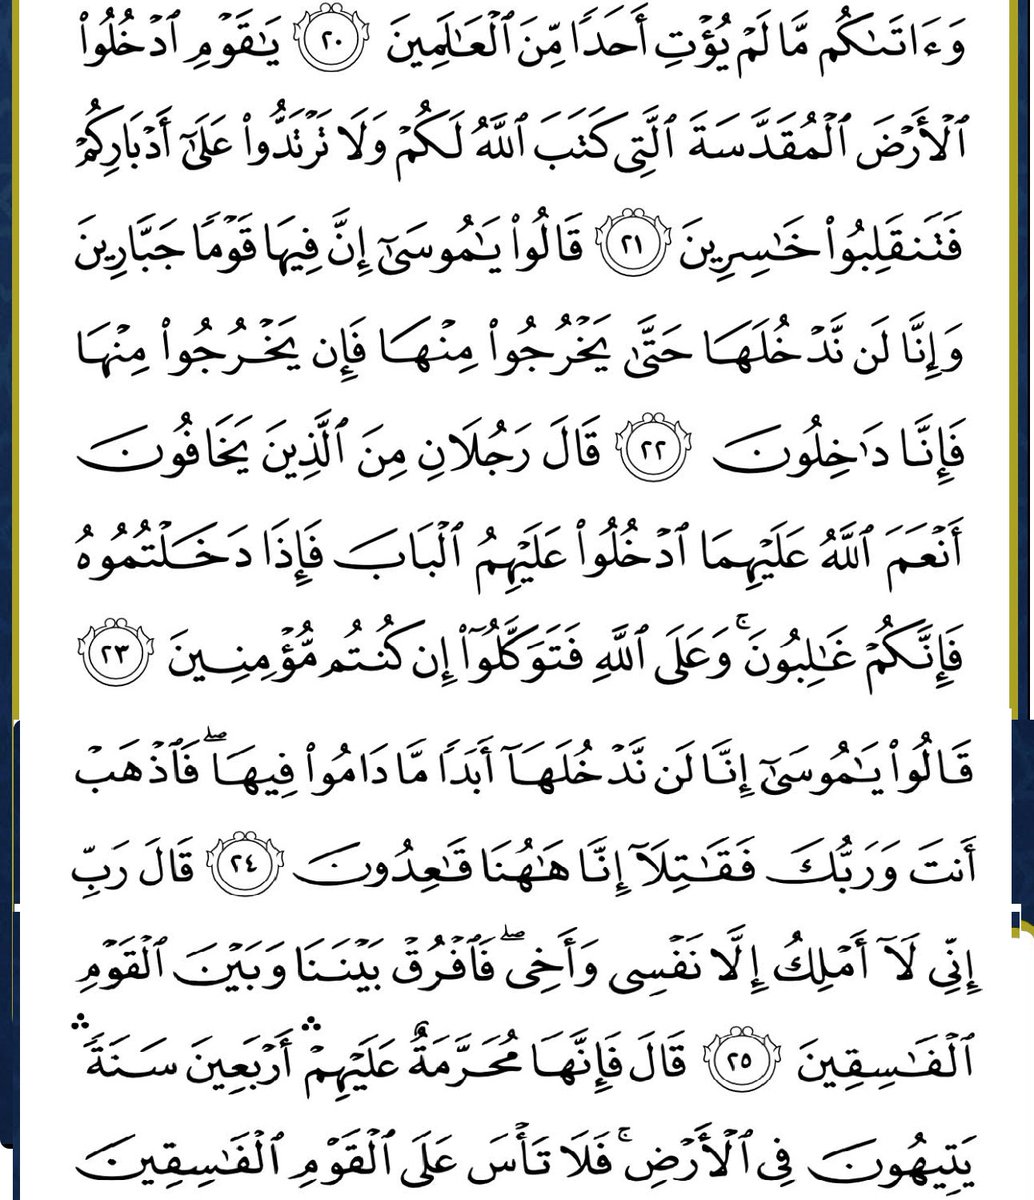 وَءَاتَىٰكُم مَّا لَمۡ يُؤۡتِ أَحَدٗا مِّنَ ٱلۡعَٰلَمِينَ ٢٠ يَٰقَوۡمِ ٱدۡخُلُواْ
ٱلۡأَرۡضَ ٱلۡمُقَدَّسَةَ ٱلَّتِي كَتَبَ ٱللَّهُ لَكُمۡ وَلَا تَرۡتَدُّواْ عَلَىٰٓ أَدۡبَارِكُمۡ
فَتَنقَلِبُواْ خَٰسِرِينَ ٢١ قَالُواْ يَٰمُوسَىٰٓ إِنَّ فِيهَا قَوۡمٗا جَبَّارِينَ
وَإِنَّا لَن نَّدۡخُلَهَا حَتَّىٰ يَخۡرُجُواْ مِنۡهَا فَإِن يَخۡرُجُواْ مِنۡهَا
فَإِنَّا دَٰخِلُونَ ٢٢ قَالَ رَجُلَانِ مِنَ ٱلَّذِينَ يَخَافُونَ
أَنۡعَمَ ٱللَّهُ عَلَيۡهِمَا ٱدۡخُلُواْ عَلَيۡهِمُ ٱلۡبَابَ فَإِذَا دَخَلۡتُمُوهُ
فَإِنَّكُمۡ غَٰلِبُونَۚ وَعَلَى ٱللَّهِ فَتَوَكَّلُوٓاْ إِن كُنتُم مُّؤۡمِنِينَ ٢٣
قَالُواْ يَٰمُوسَىٰٓ إِنَّا لَن نَّدۡخُلَهَآ أَبَدٗا مَّا دَامُواْ فِيهَاۖ فَٱذۡهَبۡ
أَنتَ وَرَبُّكَ فَقَٰتِلَآ إِنَّا هَٰهُنَا قَٰعِدُونَ ٢٤ قَالَ رَبِّ
إِنِّي لَآ أَمۡلِكُ إِلَّا نَفۡسِي وَأَخِيۖ فَٱفۡرُقۡ بَيۡنَنَا وَبَيۡنَ ٱلۡقَوۡمِ
ٱلۡفَٰسِقِينَ ٢٥ قَالَ فَإِنَّهَا مُحَرَّمَةٌ عَلَيۡهِمۡۛ أَرۡبَعِينَ سَنَةٗۛ
يَتِيهُونَ فِي ٱلۡأَرۡضِۚ فَلَا تَأۡسَ عَلَى ٱلۡقَوۡمِ ٱلۡفَٰسِقِينَ